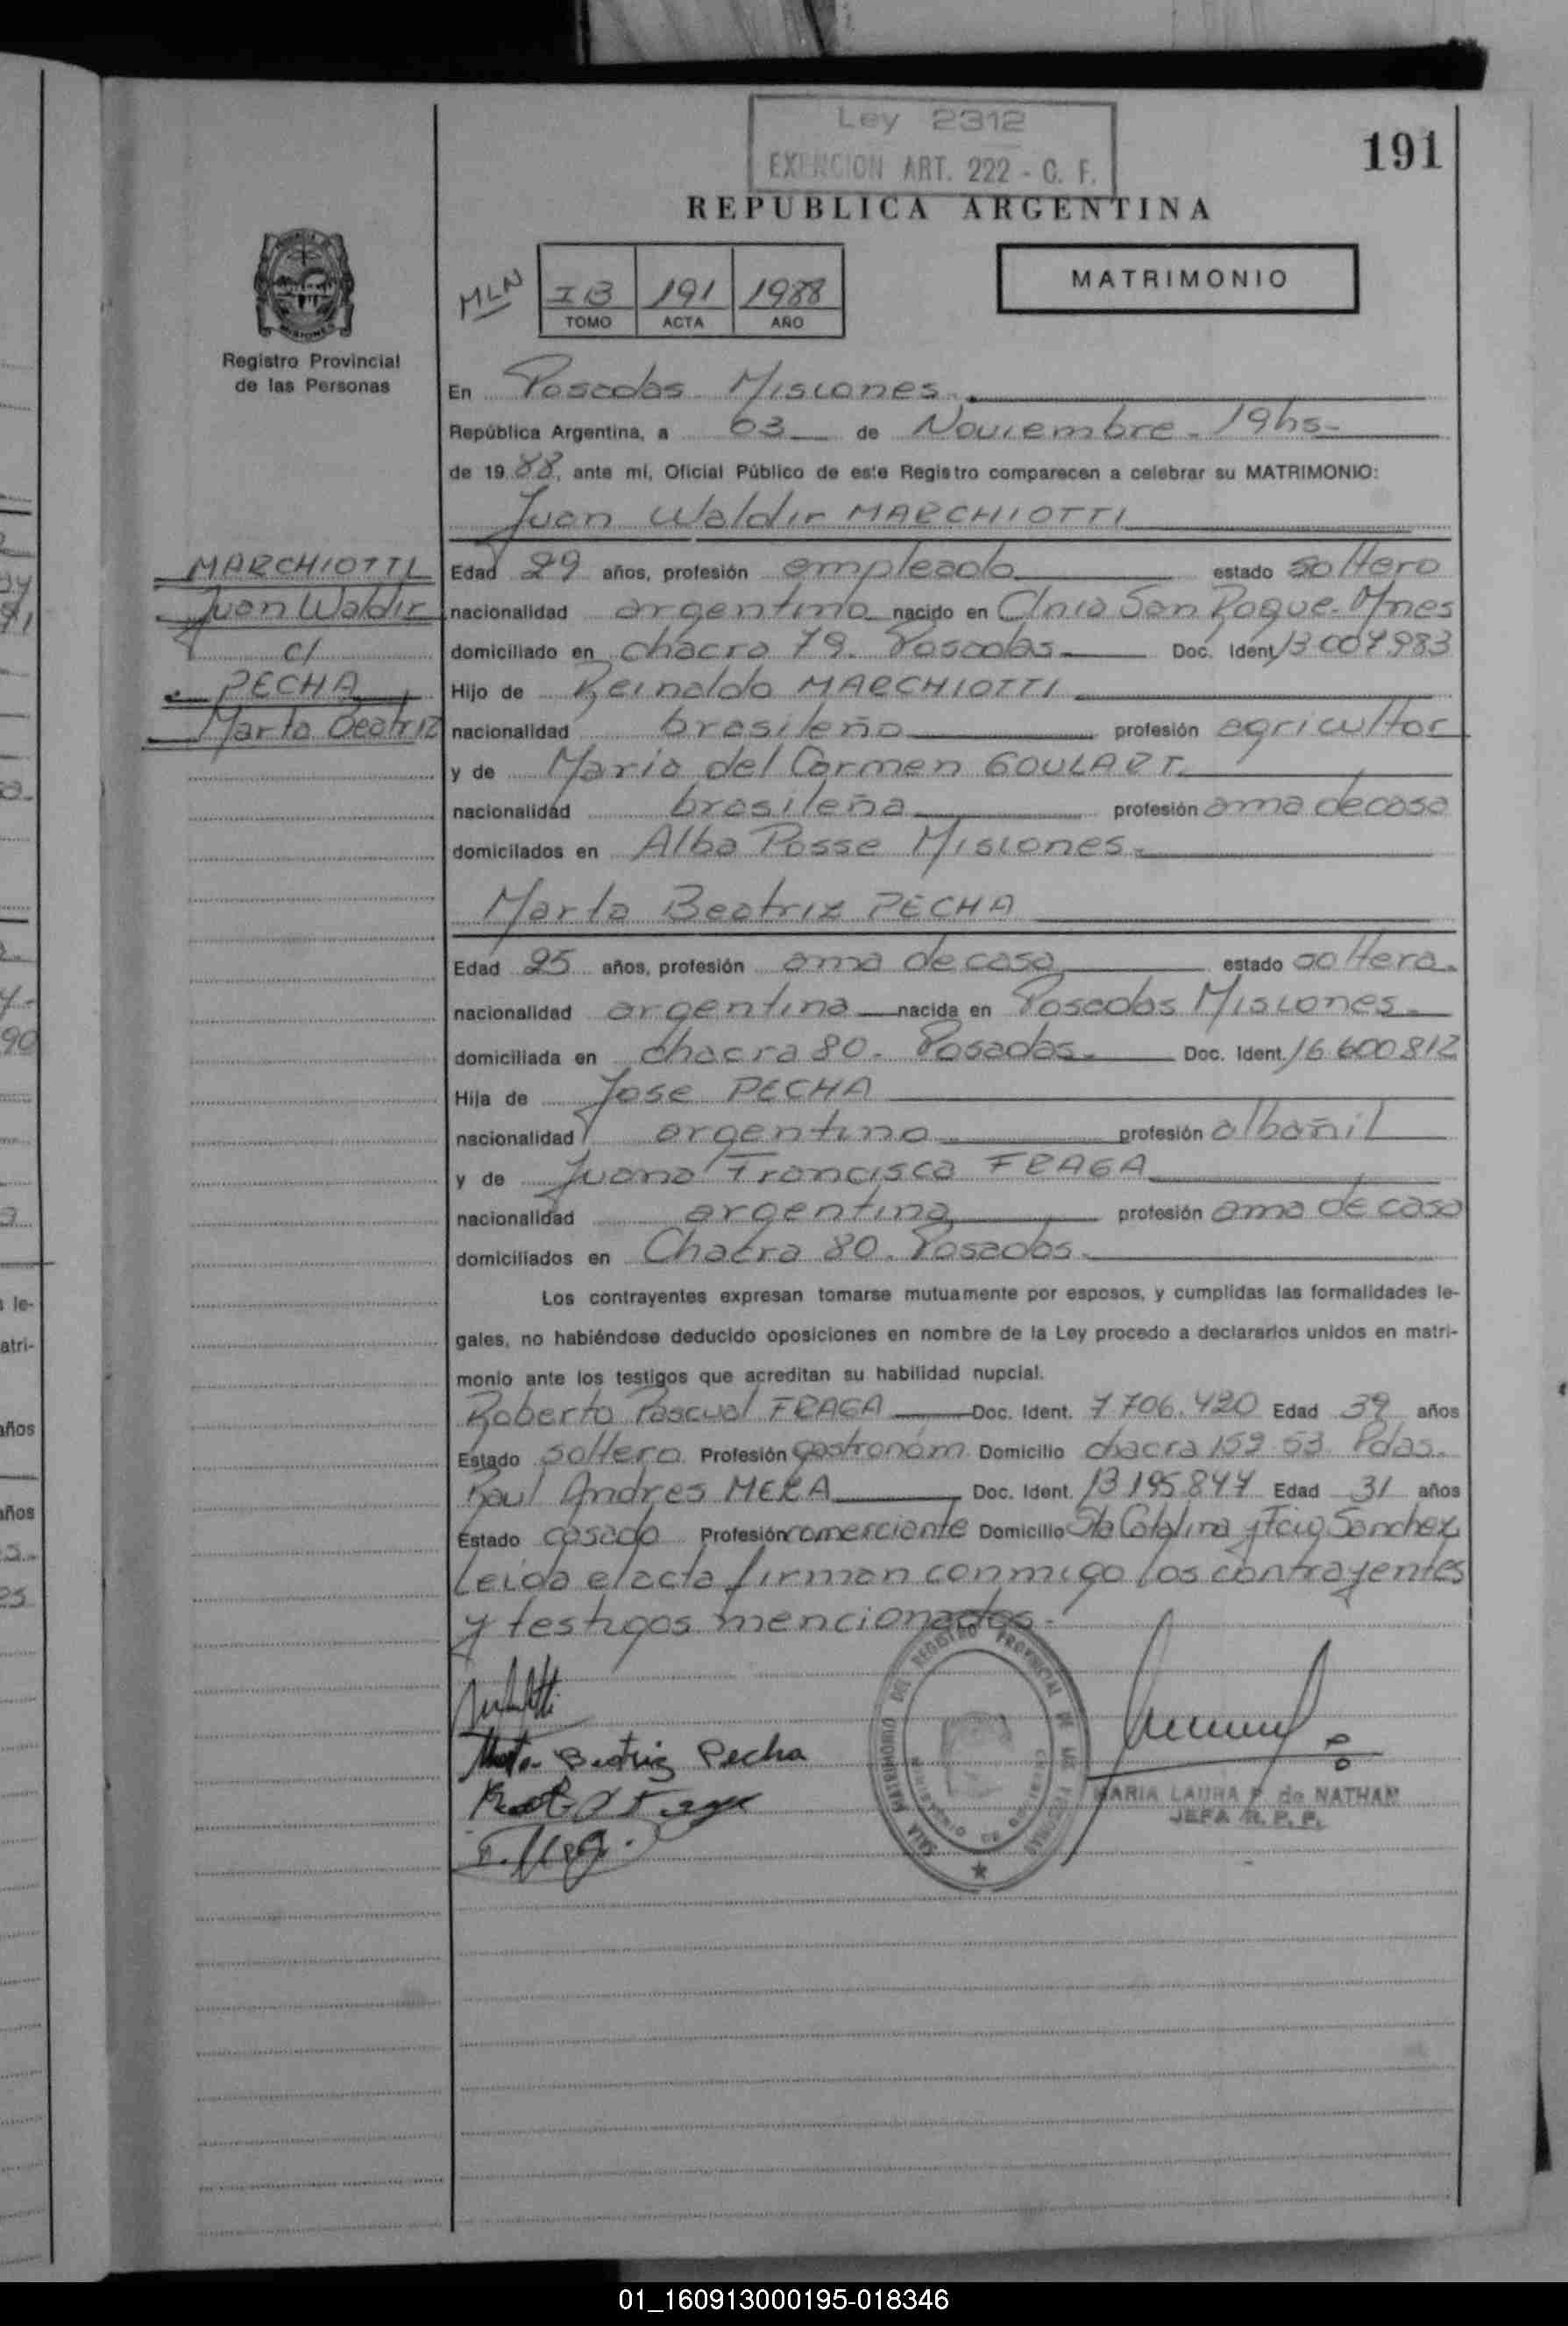 Ley 2312
EXENCION ART. 222 - C. F.
191
REPUBLICA ARGENTINA
MLN
I B 191 1988
TOMO ACTA AÑO
MATRIMONIO
Registro Provincial
de las Personas
En Posadas Misiones.
República Argentina, a 03 de Noviembre - 19hs-
de 1988, ante mí, Oficial Público de este Registro comparecen a celebrar su MATRIMONIO:
Juan Waldir MARCHIOTTI
MARCHIOTTI
Juan Waldir
c/
PECHA
Marta Beatriz
Edad 29 años, profesión empleado estado soltero
nacionalidad argentino nacido en Clnia San Roque. Mnes
domiciliado en chacra 79. Posadas Doc. Ident 13 007983
Hijo de Reinaldo MARCHIOTTI
nacionalidad brasileño profesión agricultor
y de Maria del Carmen GOULART
nacionalidad brasileña profesión ama de casa
domicilados en Alba Posse Misiones.
Marta Beatriz PECHA
Edad 25 años, profesión ama de casa estado soltera.
nacionalidad argentina nacida en Posadas Misiones.
domiciliada en chacra 80. Posadas. Doc. Ident. 16.600812
Hija de Jose PECHA
nacionalidad argentino profesión albañil
y de Juana Francisca FRAGA
nacionalidad argentina profesión ama de casa
domiciliados en Chacra 80. Posadas.
Los contrayentes expresan tomarse mutuamente por esposos, y cumplidas las formalidades le-
gales, no habiéndose deducido oposiciones en nombre de la Ley procedo a declararlos unidos en matri-
monio ante los testigos que acreditan su habilidad nupcial.
Roberto Pascual FRAGA Doc. Ident. 7706.420 Edad 39 años
Estado soltero Profesión gastronom. Domicilio chacra 159 53 Pdas.
Raul Andres MERA Doc. Ident. 13195847 Edad 31 años
Estado casado Profesión comerciante Domicilio Sta Catalina y Fcio Sanchez
Leida el acta firman conmigo los contrayentes
y testigos mencionados.
Marta Beatriz Pecha
SALA MATRIMONIO DEL REGISTRO PROVINCIAL DE LAS PERSONAS
MARIA LAURA P. de NATHAN
JEFA R. P. P.
01_160913000195-018346